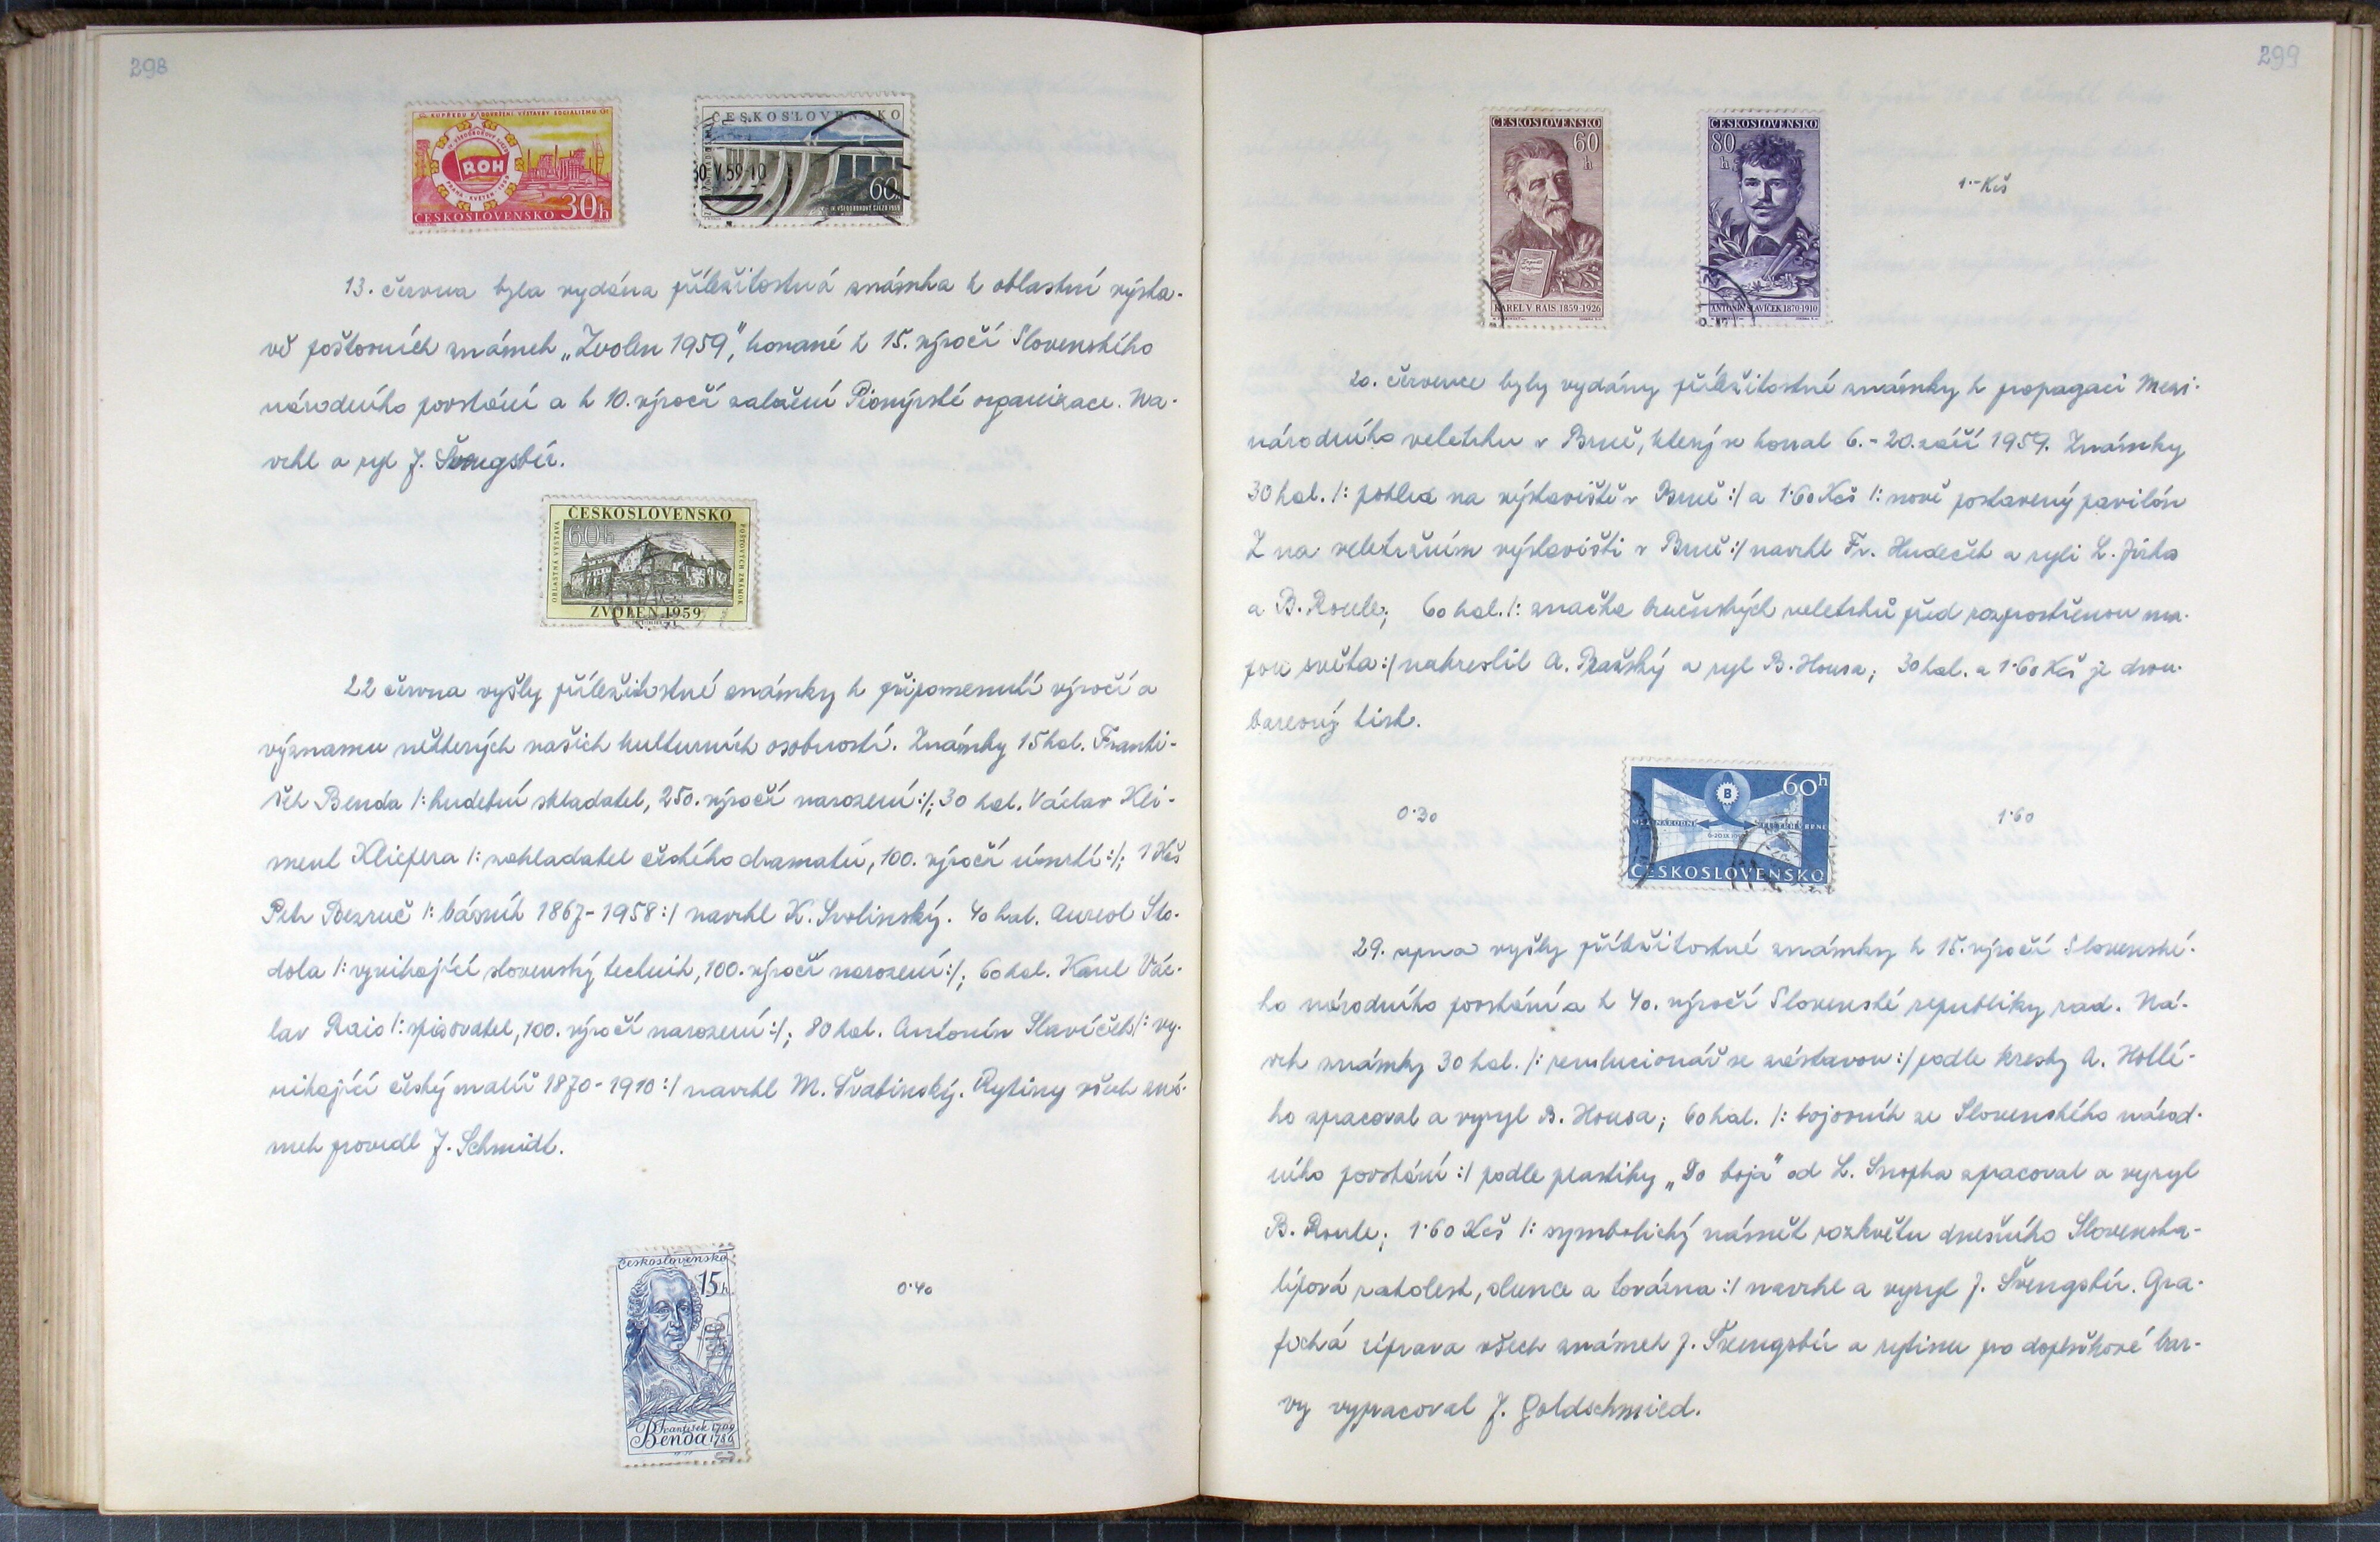 298
KUPŘEDU K DOVRŠENÍ VÝSTAVBY SOCIALISMU
ROH
PRAHA - KVĚTEN
ČESKOSLOVENSKO 30h
ČESKOSLOVENSKO
0.V.59-10
60
IV. VŠEODBOROVÝ SJEZD 1959
13. června byla vydána příležitostná známka k oblastní výsta-
vě poštovních známek „Zvolen 1959", konané k 15. výročí Slovenského
národního povstání a k 10. výročí založení Pionýrské organizace. Na-
vrhl a ryl J. Švengsbír.
ČESKOSLOVENSKO
60h
OBLASTNÁ VÝSTAVA
POŠTOVÝCH ZNÁMOK
ZVOLEN 1959
22 června vyšly příležitostné známky k připomenutí výročí a
významu některých našich kulturních osobností. Známky 15 hal. Franti-
šek Benda /: hudební skladatel, 250. výročí narození :/; 30 hal. Václav Kli-
ment Klicpera /: zakladatel českého dramatu, 100. výročí úmrtí :/; 1 Kčs
Petr Bezruč /: básník 1867-1958 :/ navrhl K. Svolinský. 40 hal. Aurel Sto-
dola /: vynikající slovenský technik, 100. výročí narození :/; 60 hal. Karel Vác-
lav Rais /: spisovatel, 100. výročí narození :/; 80 hal. Antonín Slavíček /: vy-
nikající český malíř 1870-1910 :/ navrhl M. Švabinský. Rytiny všech zná-
mek provedl J. Schmidt.
Československo
15h
František 1709
Benda 1786
0·40
299
ČESKOSLOVENSKO
60
h
KAREL V. RAIS 1859-1926
ČESKOSLOVENSKO
80
h
ANTONÍN SLAVÍČEK 1870-1910
1·-Kčs
20. července byly vydány příležitostné známky k propagaci Mezi-
národního veletrhu v Brně, který se konal 6.-20. září 1959. Známky
30 hal. /: pohled na výstaviště v Brně :/ a 1·60 Kčs /: nově postavený pavilón
Z na veletržním výstavišti v Brně :/ navrhl Fr. Hudeček a ryli L. Jirka
a B. Roule; 60 hal. /: značka brněnských veletrhů před rozprostřenou ma-
pou světa :/ nakreslil A. Pražský a ryl B. Housa; 30 hal. a 1·60 Kčs je dvou-
barevný tisk.
0·30
60h
B
6-20.IX.1959
ČESKOSLOVENSKO
1·60
29. srpna vyšly příležitostné známky k 15. výročí Slovenské-
ho národního povstání a k 40. výročí Slovenské republiky rad. Ná-
vrh známky 30 hal. /: revolucionář se zástavou :/ podle kresby A. Hollé-
ho zpracoval a vyryl B. Housa; 60 hal. /: bojovník ze Slovenského národ-
ního povstání :/ podle plastiky „Do boja" od L. Snopka zpracoval a vyryl
B. Roule; 1·60 Kčs /: symbolický námět rozkvětu dnešního Slovenska-
lipová ratolest, slunce a továrna :/ navrhl a vyryl J. Švengsbír. Gra-
fická úprava všech známek J. Švengsbír a rytinu pro doplňkové bar-
vy vypracoval J. Goldschmied.